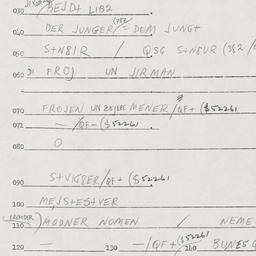 030 BEJDT LIB2
040 DER JUNGER/= DEM JUNGT
050 S+N81R / QSG S+N8UR (362
060 FROJ UN JIRMAN
070 FROJEN UN BEJERE MENER/QF+ ($52261
071 — /QF-($52261
080 O
090 S+VIG8ER/QF+ ($52261
100 MEJS+ES+VER
110 ) MODNER NOMEN / NEME
120 — 130 —/QF+($52261 240 BUNES